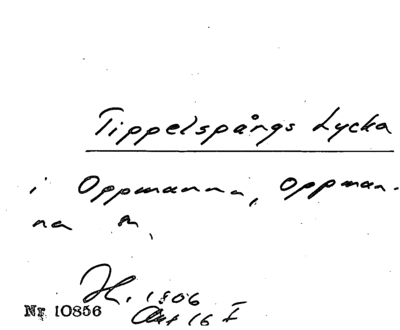 Tippelspångs Lycka
i Oppmanna, Oppman-
na sn,
H. 1806
Akt 16 I
Nr 10856